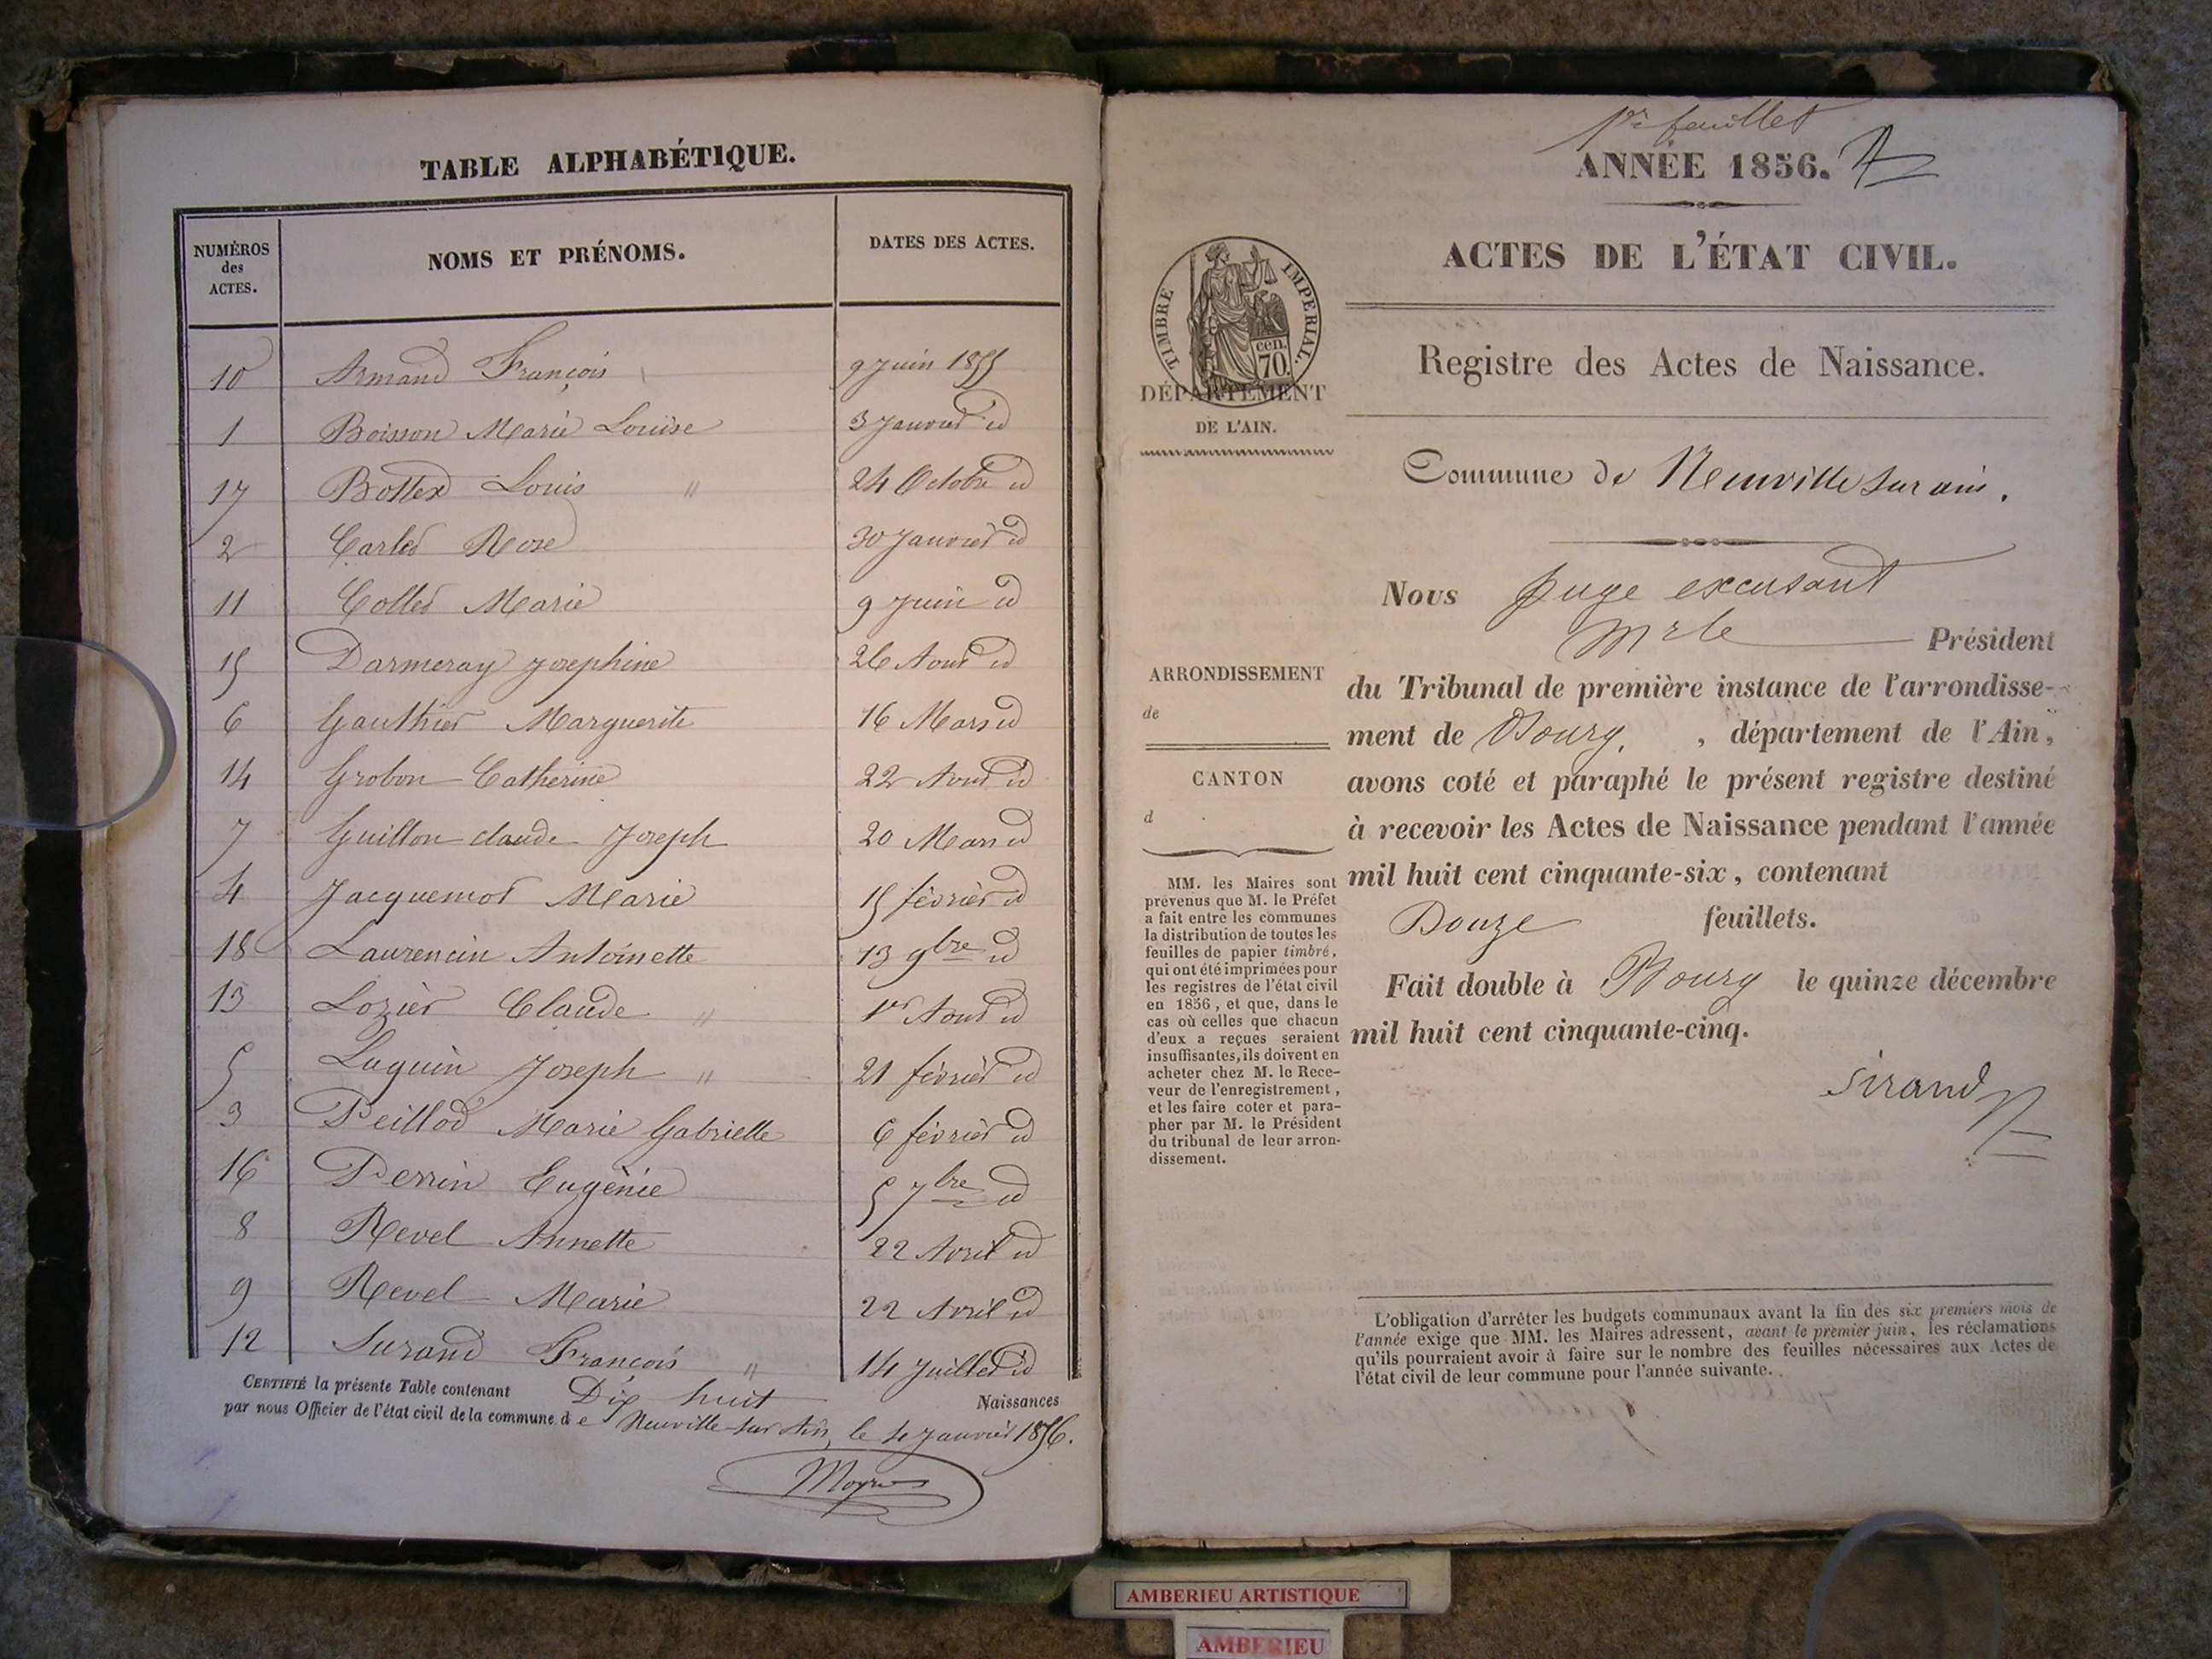 TABLE ALPHABÉTIQUE.
NUMÉROS des ACTES.
NOMS ET PRÉNOMS.
DATES DES ACTES.
10 Armand François 9 Juin 1855
1 Boisson Marie Louise 3 Janvier id
17 Bottex Louis " 24 Octobre id
2 Carlet Rose 30 Janvier id
11 Collet Marie 9 Juin id
15 Darmeray Josephine 26 Aout id
6 Gauthier Marguerite 16 Mars id
14 Grobon Catherine 22 Aout id
7 Guillon claude Joseph 20 Mars id
4 Jacquemot Marie 15 février id
18 Laurencin Antoinette 13 9bre id
13 Lozier Claude " 1er Aout id
5 Luguin Joseph " 21 février id
3 Peillod Marie Gabrielle 6 février id
16 Perrin Eugènie 5 7bre id
8 Revel Annette 22 Avril id
9 Revel Marie 22 Avril id
12 Surand François " 14 Juillet id
CERTIFIÉ la présente Table contenant Dix huit Naissances
par nous Officier de l'état civil de la commune de Neuville sur Ain, le 4 Janvier 1856.
1er feuillet
ANNÉE 1856.
ACTES DE L'ÉTAT CIVIL.
TIMBRE IMPERIAL.
cen.
70.
DÉPARTEMENT
DE L'AIN.
Registre des Actes de Naissance.
Commune de Neuville sur ain.
Nous Juge excusant
Mr le Président
du Tribunal de première instance de l'arrondisse-
ment de Bourg, , département de l'Ain,
avons coté et paraphé le présent registre destiné
à recevoir les Actes de Naissance pendant l'année
mil huit cent cinquante-six, contenant
Douze feuillets.
Fait double à Bourg le quinze décembre
mil huit cent cinquante-cinq.
Sirand
ARRONDISSEMENT
de
CANTON
d
MM. les Maires sont
prévenus que M. le Préfet
a fait entre les communes
la distribution de toutes les
feuilles de papier timbré,
qui ont été imprimées pour
les registres de l'état civil
en 1856, et que, dans le
cas où celles que chacun
d'eux a reçues seraient
insuffisantes, ils doivent en
acheter chez M. le Rece-
veur de l'enregistrement,
et les faire coter et para-
pher par M. le Président
du tribunal de leur arron-
dissement.
L'obligation d'arrêter les budgets communaux avant la fin des six premiers mois de
l'année exige que MM. les Maires adressent, avant le premier juin, les réclamations
qu'ils pourraient avoir à faire sur le nombre des feuilles nécessaires aux Actes de
l'état civil de leur commune pour l'année suivante.
AMBERIEU ARTISTIQUE
AMBERIEU